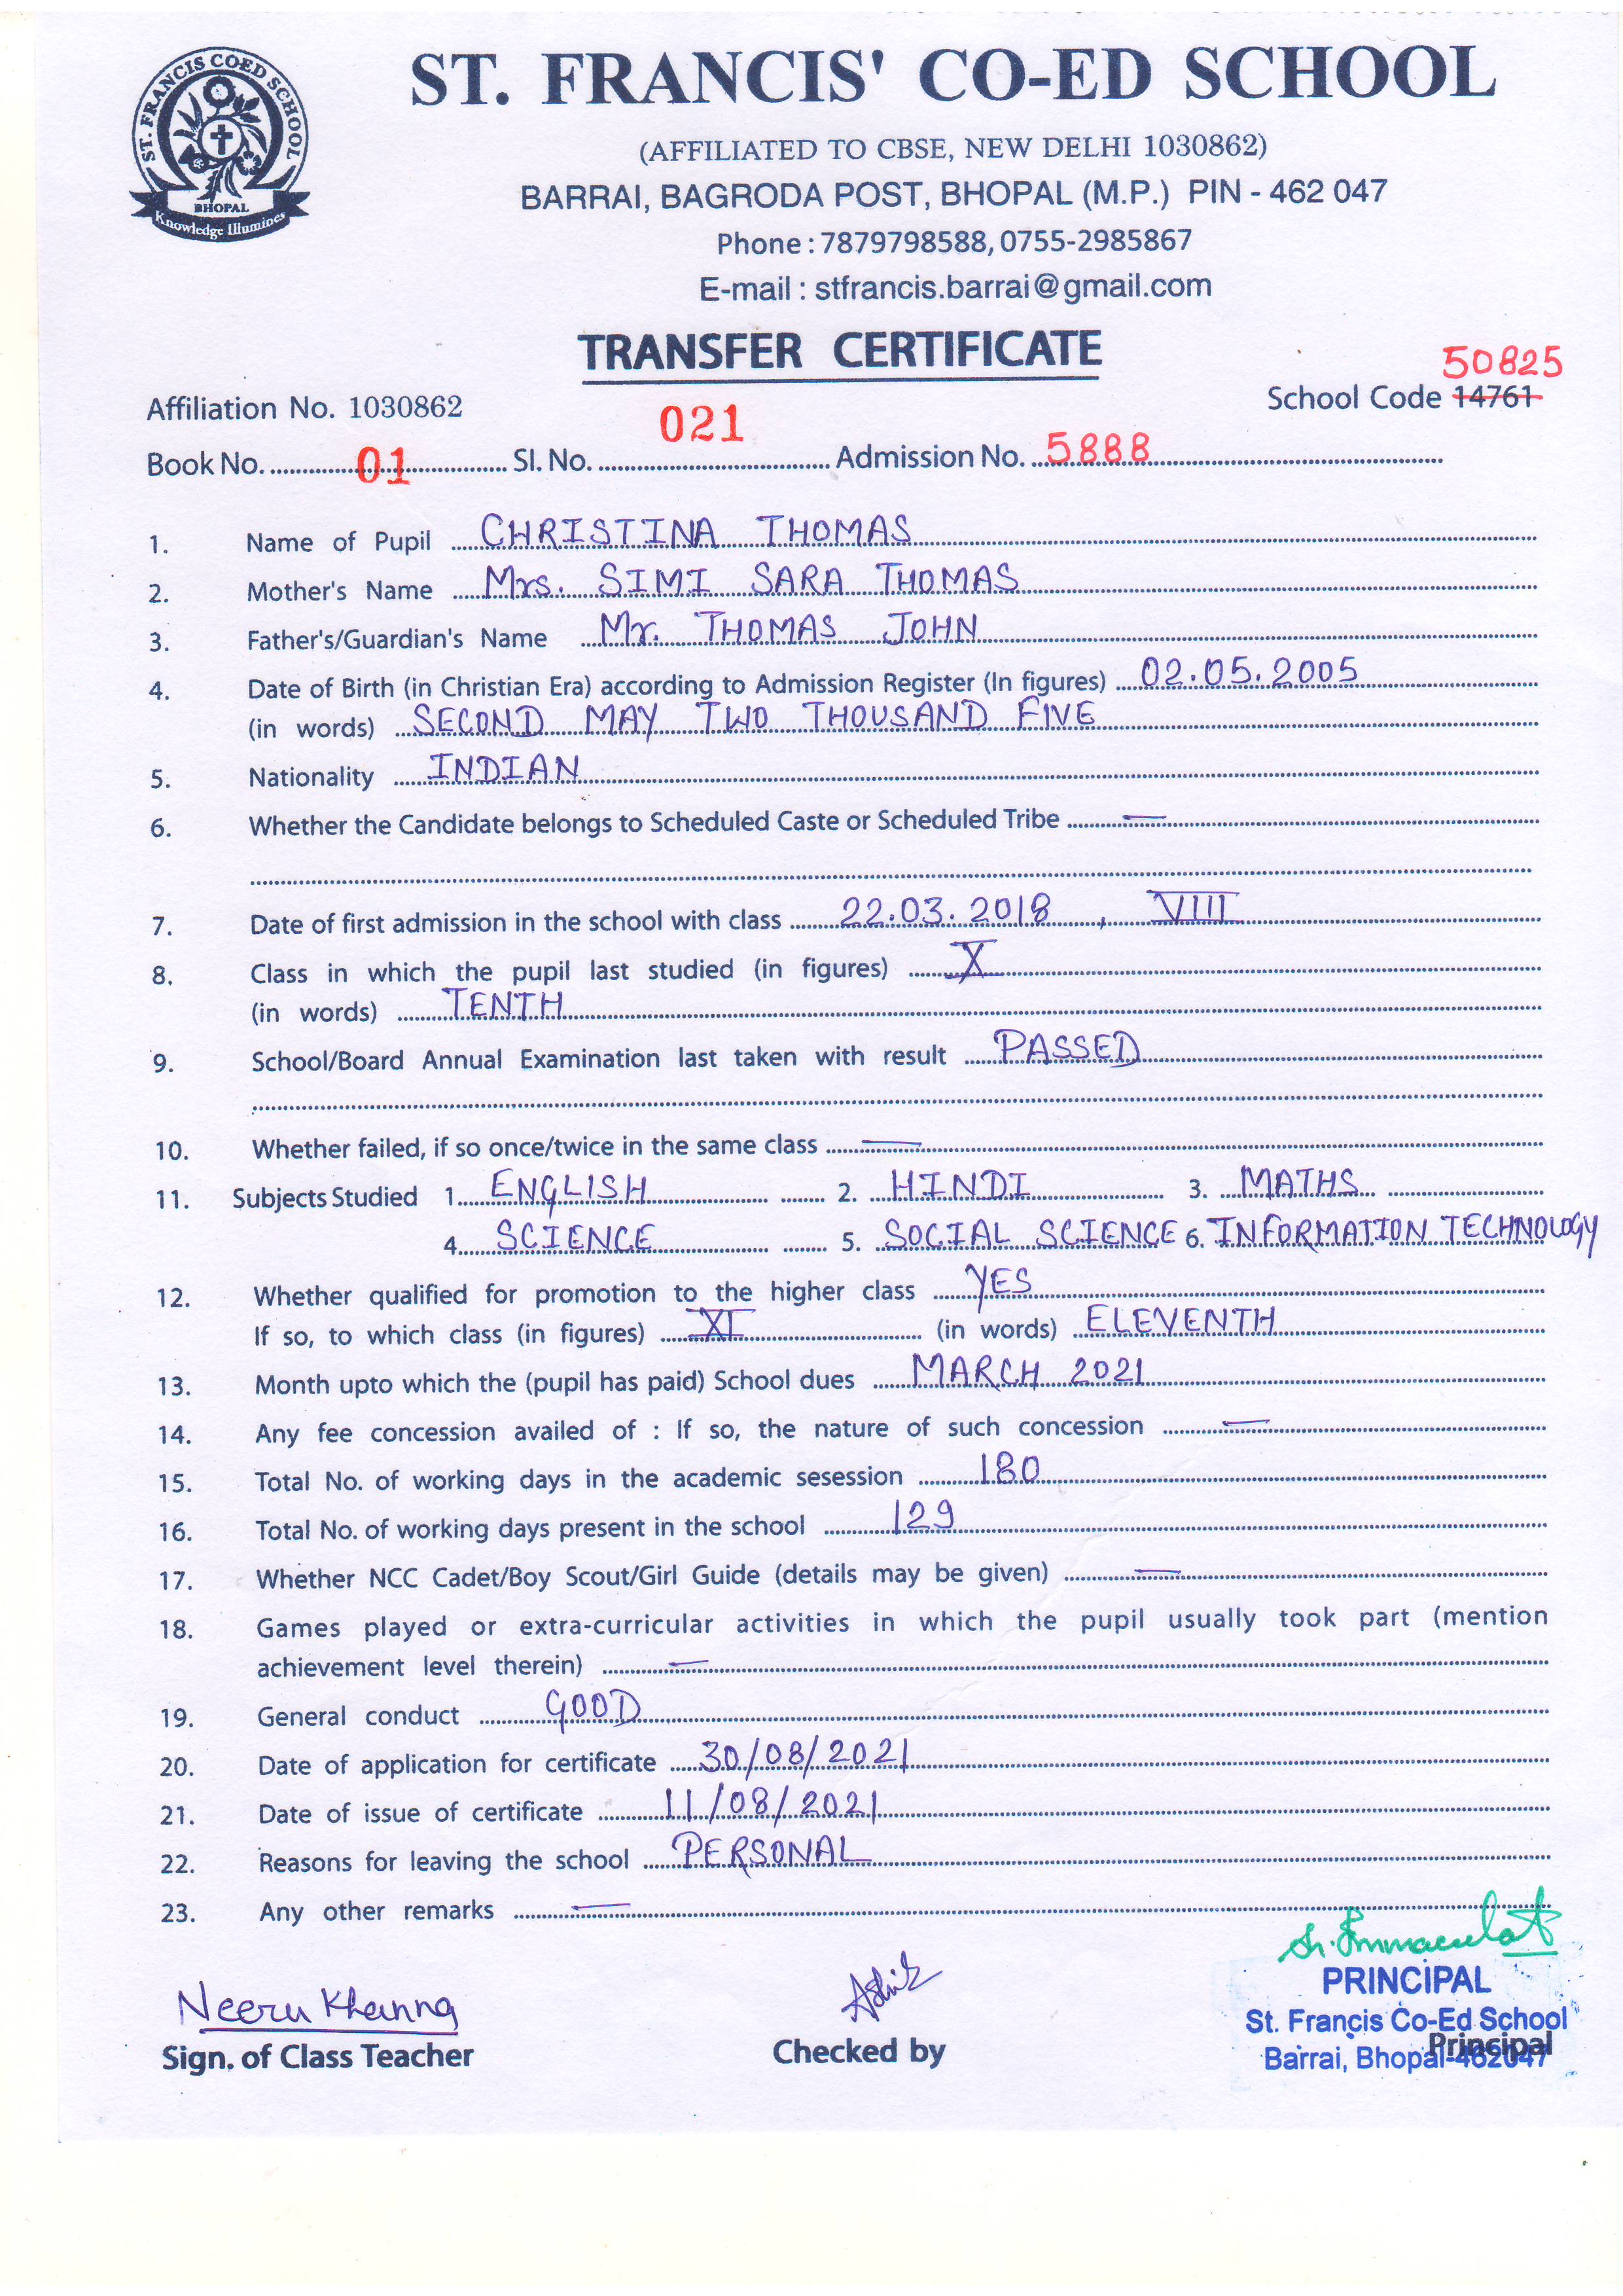 ST. FRANCIS COED SCHOOL
BHOPAL
Knowledge Illumines
ST. FRANCIS' CO-ED SCHOOL
(AFFILIATED TO CBSE, NEW DELHI 1030862)
BARRAI, BAGRODA POST, BHOPAL (M.P.) PIN - 462 047
Phone : 7879798588, 0755-2985867
E-mail : stfrancis.barrai@gmail.com
TRANSFER CERTIFICATE
50825
Affiliation No. 1030862 School Code 14761
Book No. 01 Sl. No. 021 Admission No. 5888
1. Name of Pupil CHRISTINA THOMAS
2. Mother's Name Mrs. SIMI SARA THOMAS
3. Father's/Guardian's Name Mr. THOMAS JOHN
4. Date of Birth (in Christian Era) according to Admission Register (In figures) 02.05.2005
(in words) SECOND MAY TWO THOUSAND FIVE
5. Nationality INDIAN
6. Whether the Candidate belongs to Scheduled Caste or Scheduled Tribe —
7. Date of first admission in the school with class 22.03.2018, VIII
8. Class in which the pupil last studied (in figures) X
(in words) TENTH
9. School/Board Annual Examination last taken with result PASSED
10. Whether failed, if so once/twice in the same class —
11. Subjects Studied 1. ENGLISH 2. HINDI 3. MATHS
4. SCIENCE 5. SOCIAL SCIENCE 6. INFORMATION TECHNOLOGY
12. Whether qualified for promotion to the higher class YES
If so, to which class (in figures) XI (in words) ELEVENTH
13. Month upto which the (pupil has paid) School dues MARCH 2021
14. Any fee concession availed of : If so, the nature of such concession —
15. Total No. of working days in the academic sesession 180
16. Total No. of working days present in the school 129
17. Whether NCC Cadet/Boy Scout/Girl Guide (details may be given) —
18. Games played or extra-curricular activities in which the pupil usually took part (mention
achievement level therein) —
19. General conduct GOOD
20. Date of application for certificate 30/08/2021
21. Date of issue of certificate 11/08/2021
22. Reasons for leaving the school PERSONAL
23. Any other remarks —
Sr. Immaculat
PRINCIPAL
Neeru Khanna St. Francis Co-Ed School
Sign. of Class Teacher Checked by Principal
Barrai, Bhopal-462047